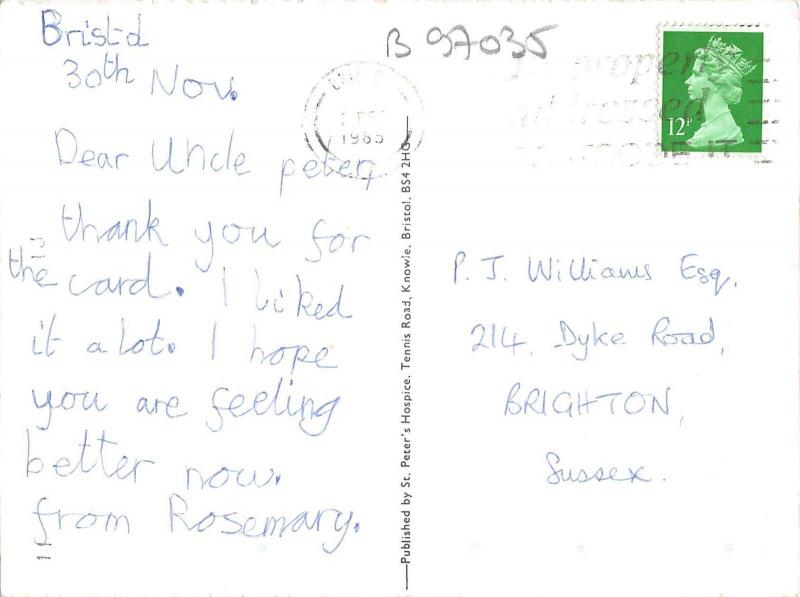 Bristol
30th Nov.
B 97035
Dear Uncle peter,
thank you for
the card. I liked
it a lot. I hope
you are feeling
better now.
from Rosemary.
Published by St. Peter's Hospice, Tennis Road, Knowle, Bristol, BS4 2HG
1985
properly
addressed
12P
P. J. Williams Esq,
214, Dyke Road,
BRIGHTON,
Sussex.